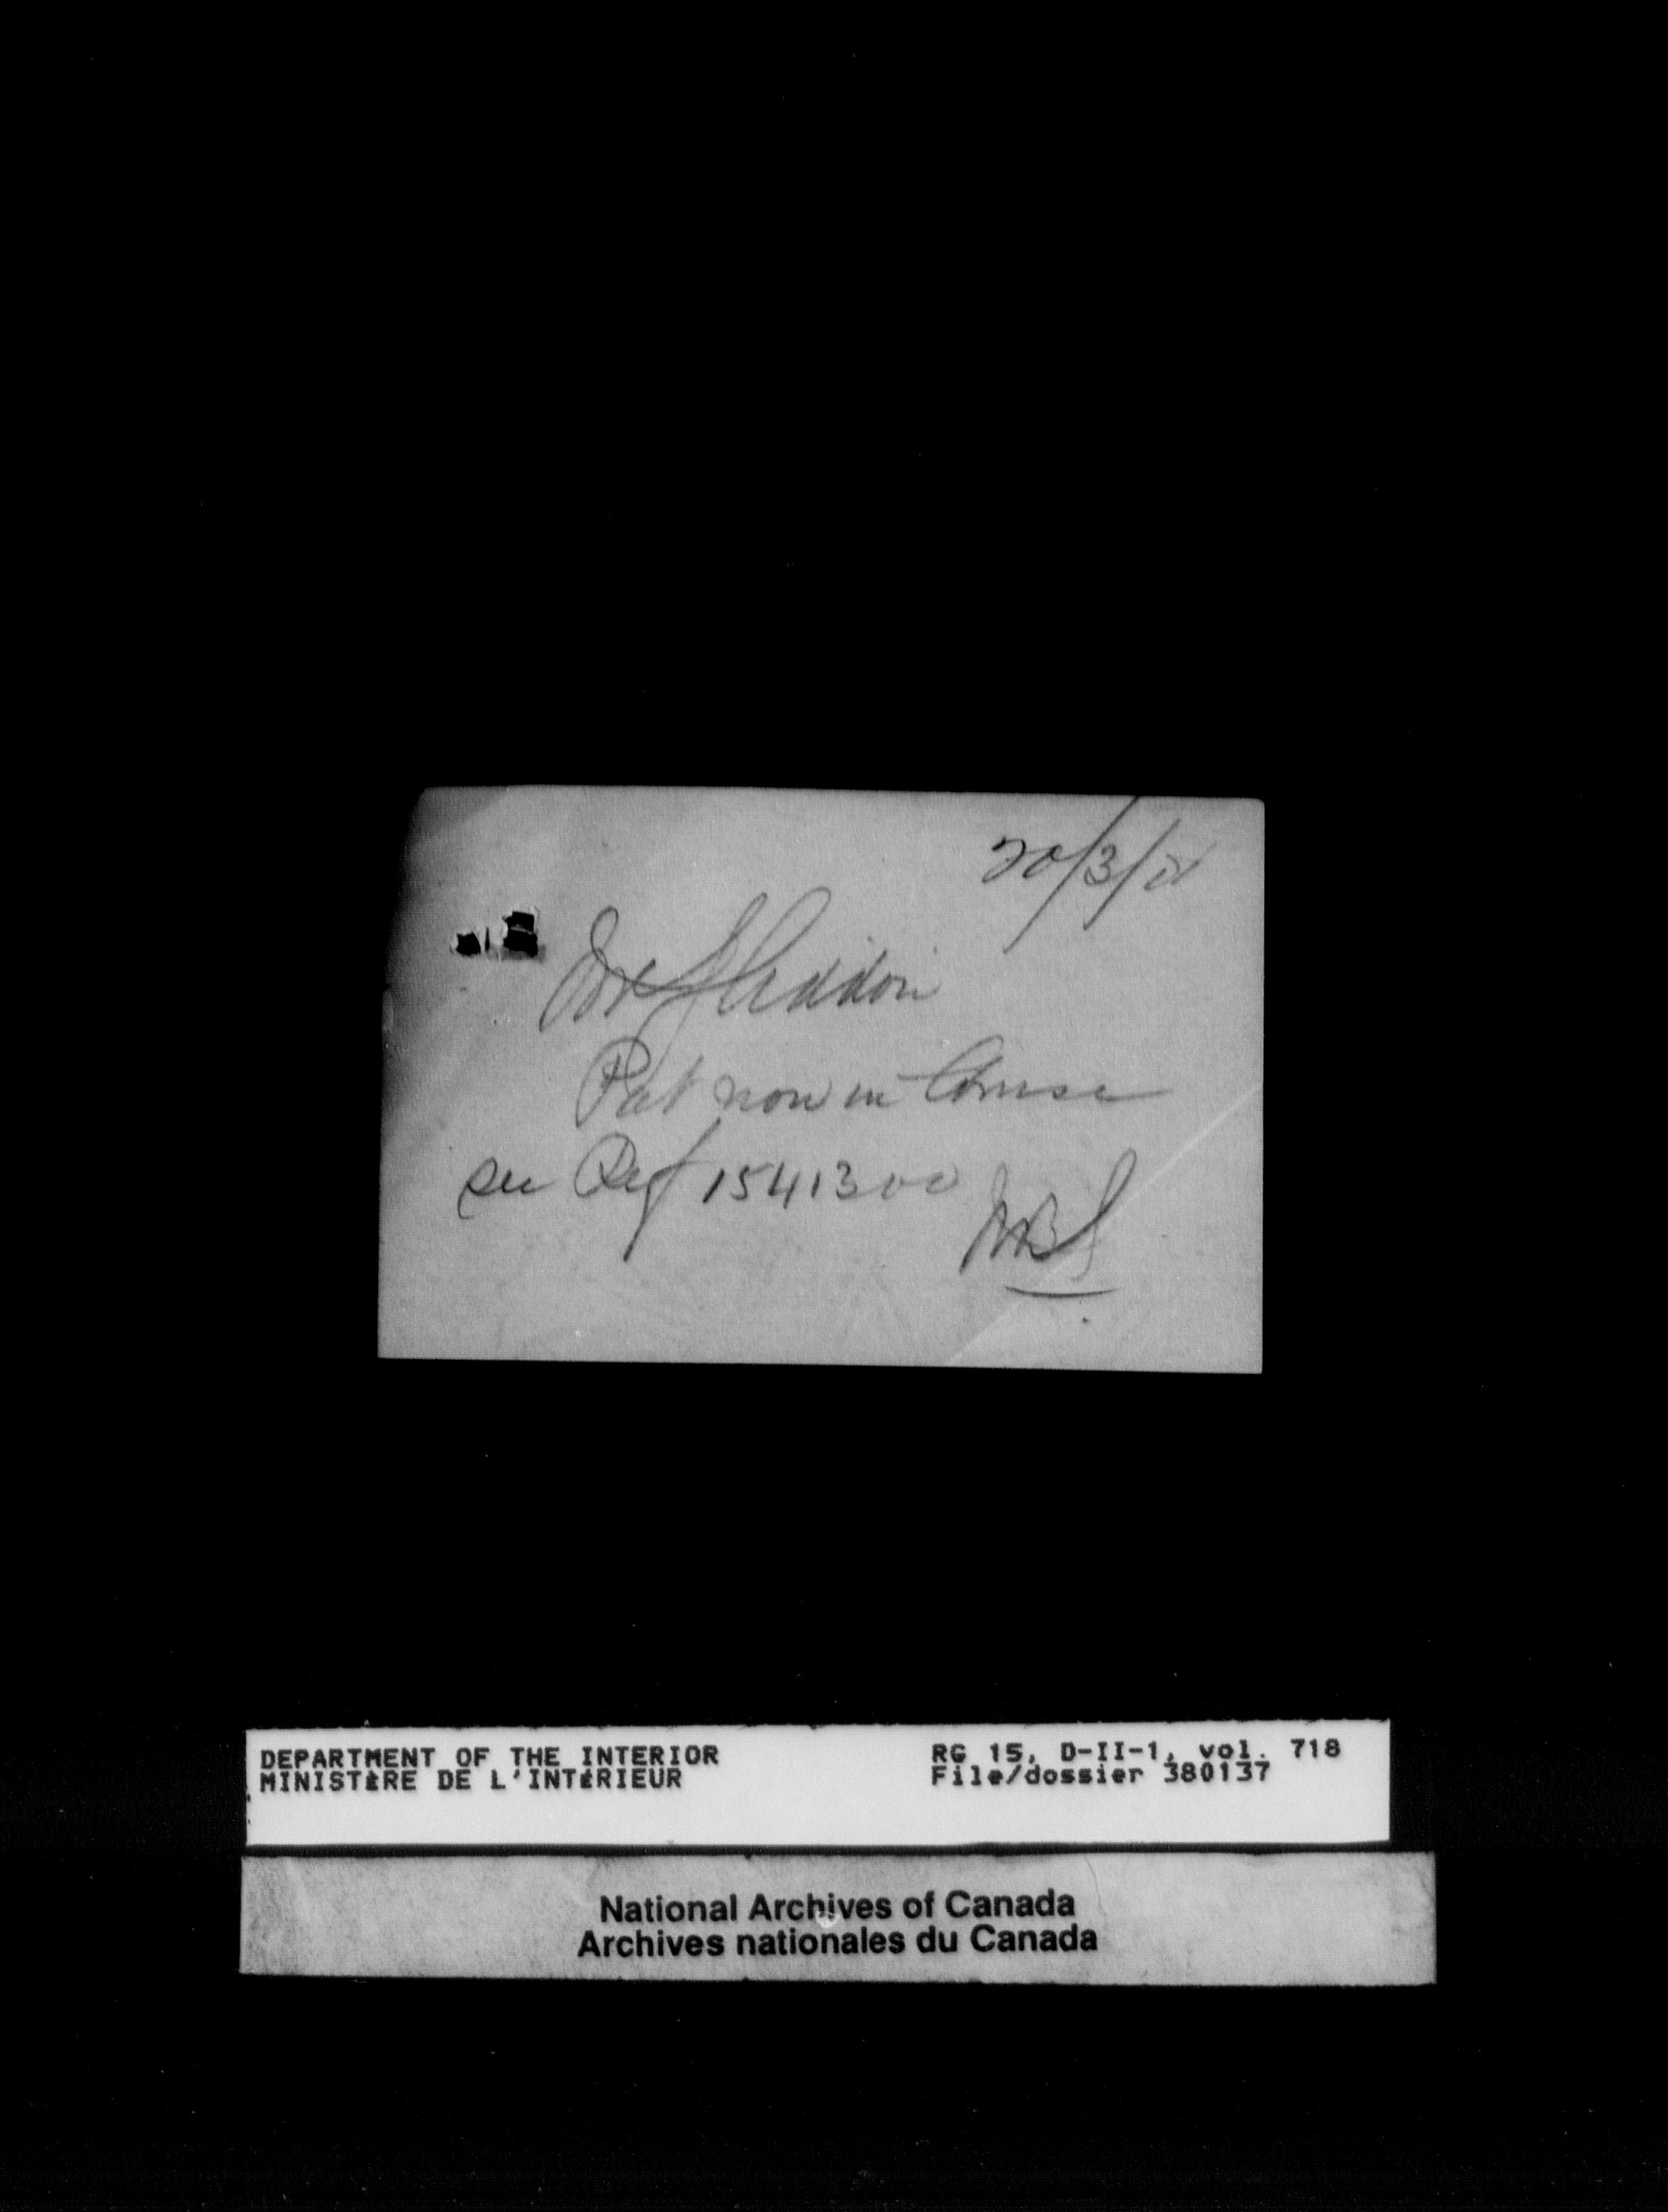 20/3/
Mr
Pat now in Course
see Ref 1541300
DEPARTMENT OF THE INTERIOR RG 15, D-II-1, vol. 718
MINISTÈRE DE L'INTÉRIEUR File/dossier 380137
National Archives of Canada
Archives nationales du Canada